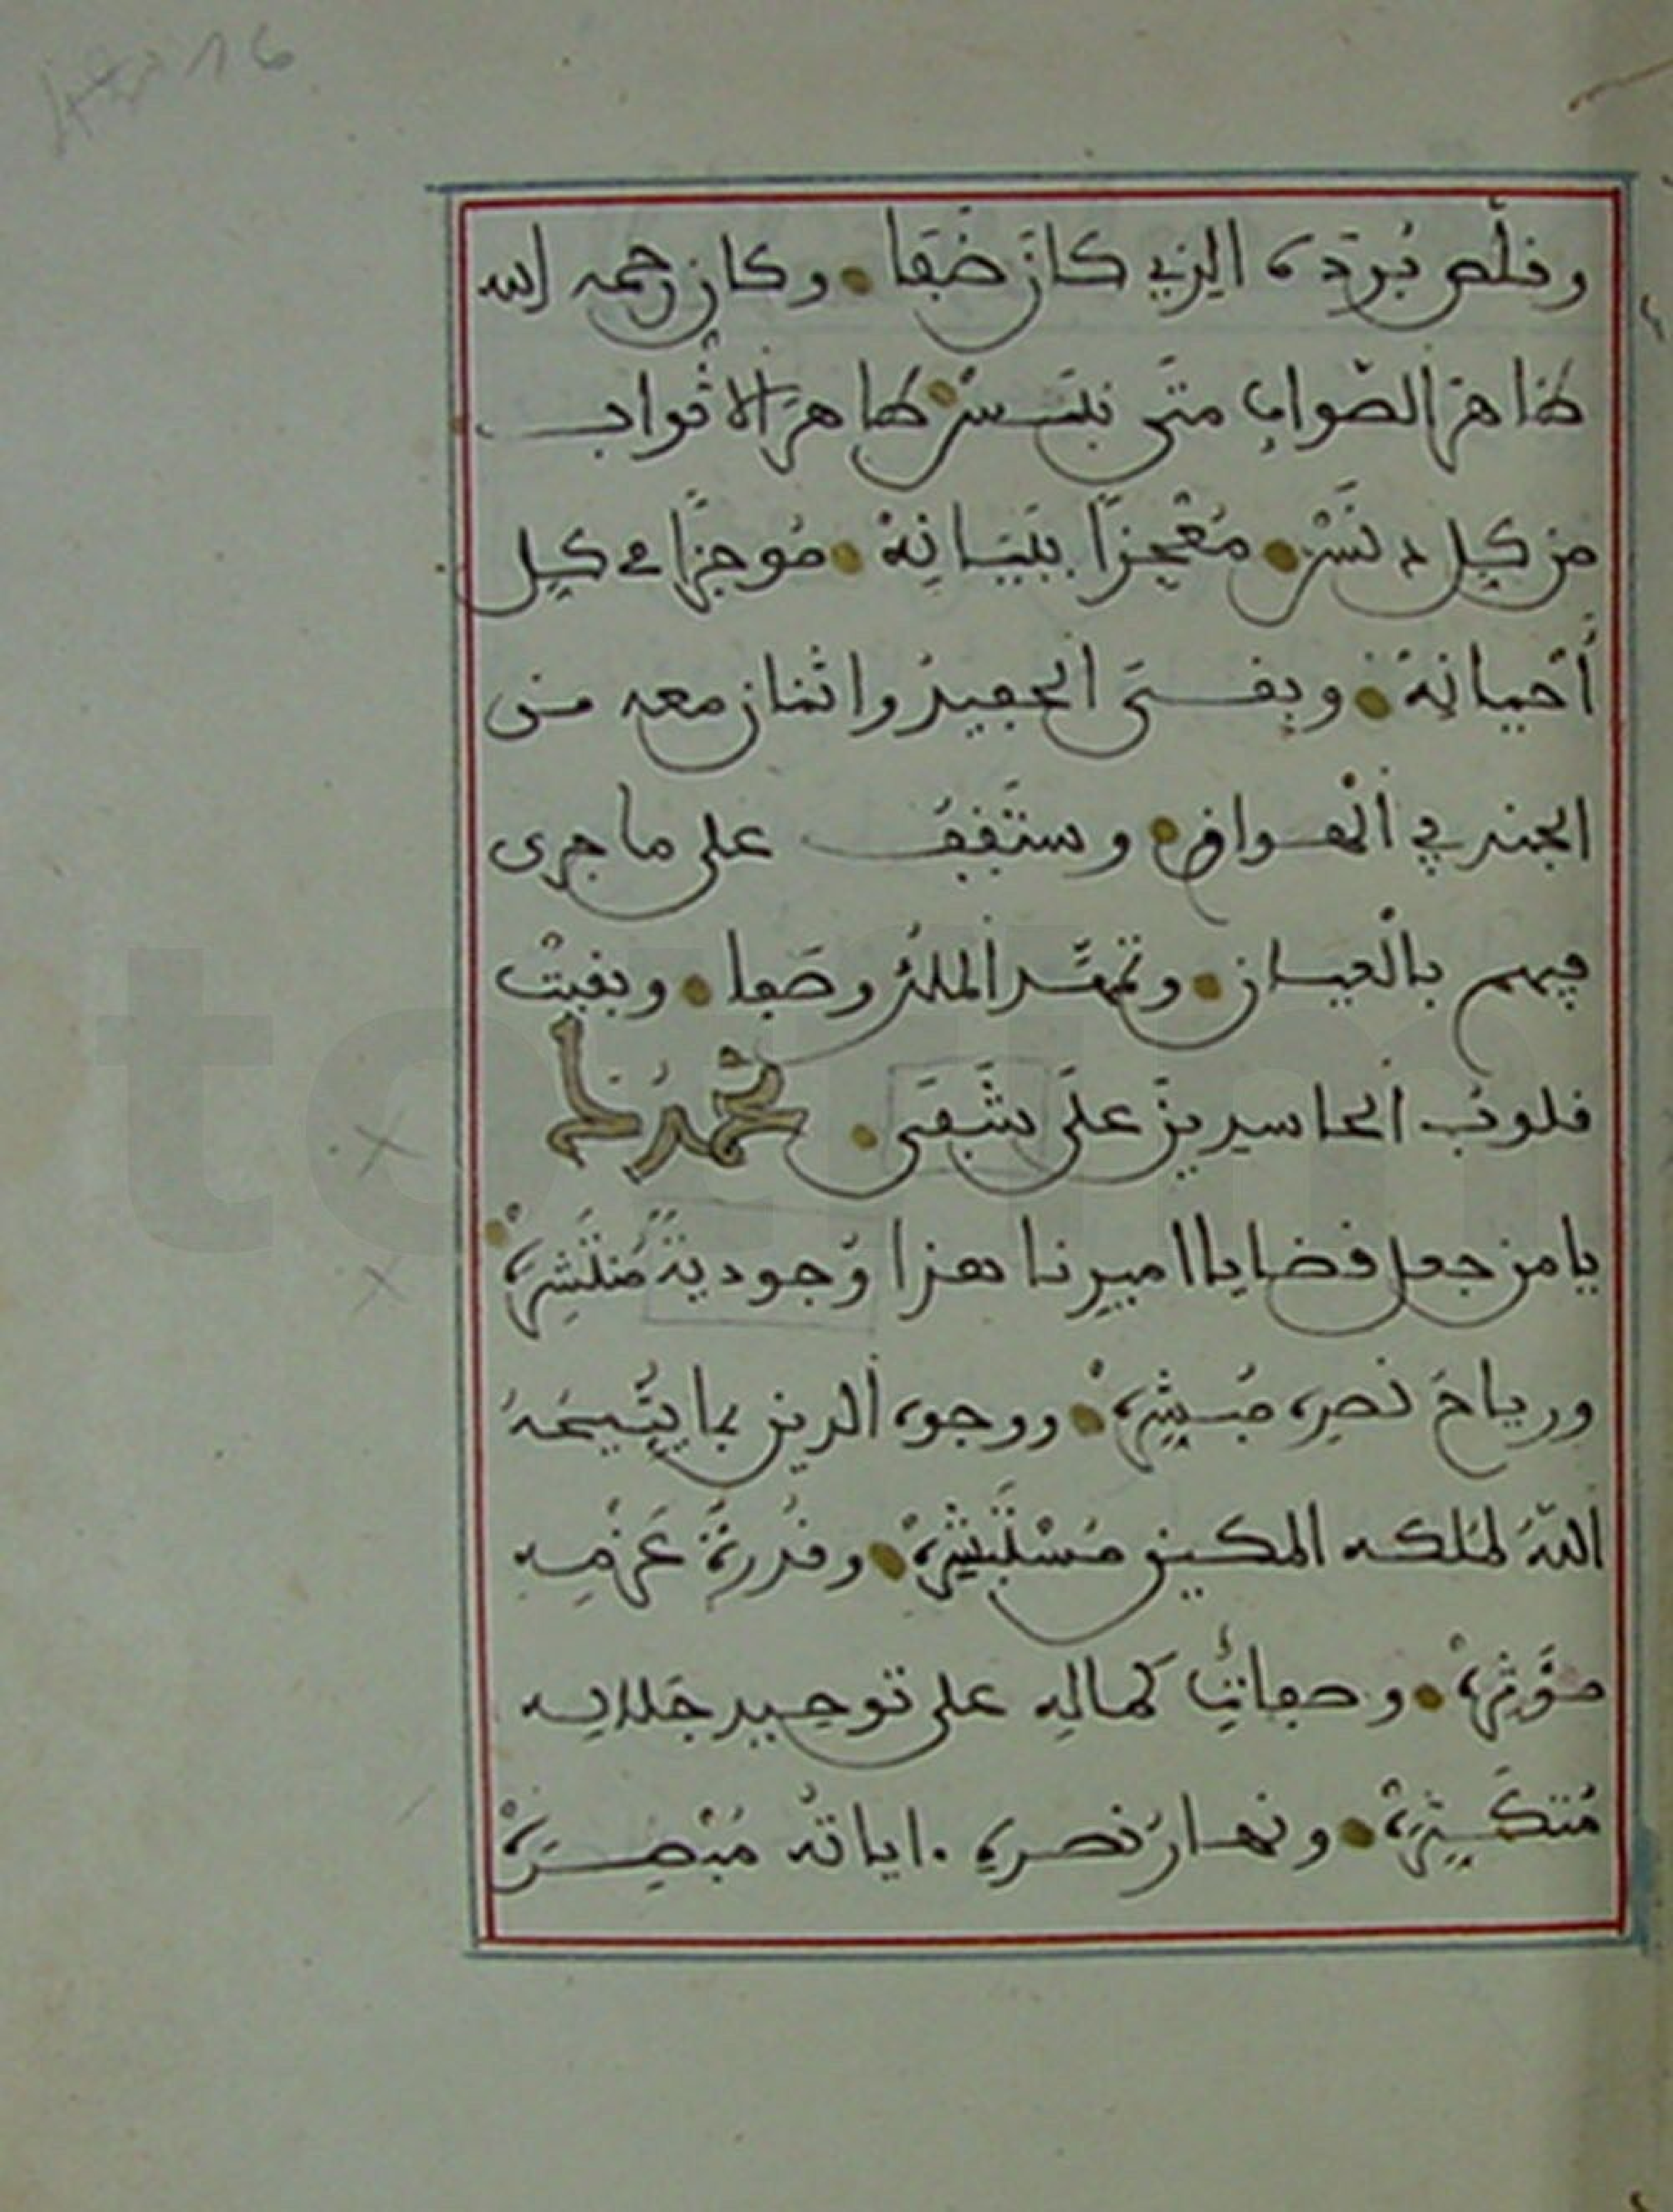 وقلّص بُردَه الذي كان ضَفَا وكان رحمه الله
ظاهرَ الصّوابِ متَى نبَسْ طاهرَ الاثواب
من كلِ دنَسْ مُعْجِزاً ببَيَانِهْ مُوجزاً في كل
أحْيانِهْ وبقى الحفيدُ واثنان معه من
الجند في
وستَقِفُ على ما جرى
فيهم بالْعيان وتمهَّد الملكُ وصَفا وبقيتْ
قلوبُ الحاسدينَ علَى شَفَى محمد
يا من جعل قضايا اميرنا هذا وُجوديةً مُنتَشِرهْ
ورياحَ نصرِه مُبَشِّرهْ ووجوه الدين بما يُتِيحَهُ
اللهُ لملكه المكين مُسْتَبْشِرهْ وقُدرةُ عَزْمِه
مؤَثِّرهْ وصفاتِ كمالِهِ على توحيد جلاله
مُتَكَثِّرهْ ونهارُ نصرِه اياتُه مُبْصِرَهْ
16